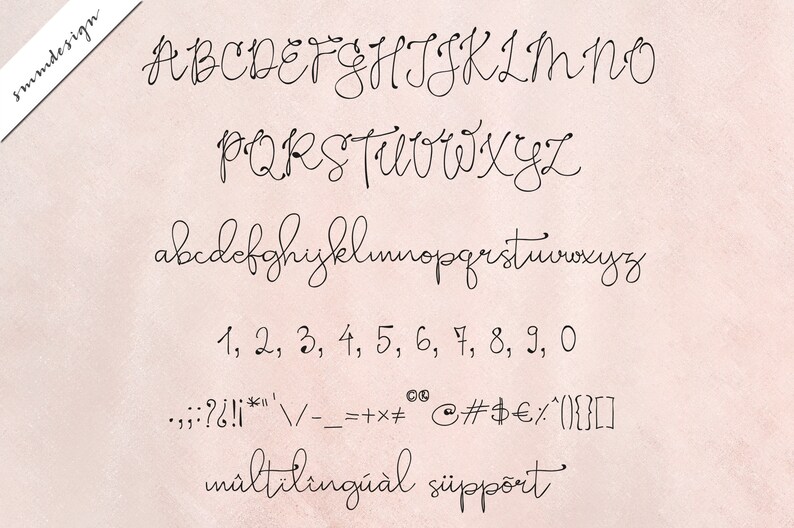 smmdesign
ABCDEFGHIJKLMNO
PQRSTUVWXYZ
abcdefghijklmnopqrstuvwxyz
1, 2, 3, 4, 5, 6, 7, 8, 9, 0
.,;:?¿!¡*"'\/-_=+×≠©®@#$€%^(){}[]
mûltïlîngúàl süppõrt